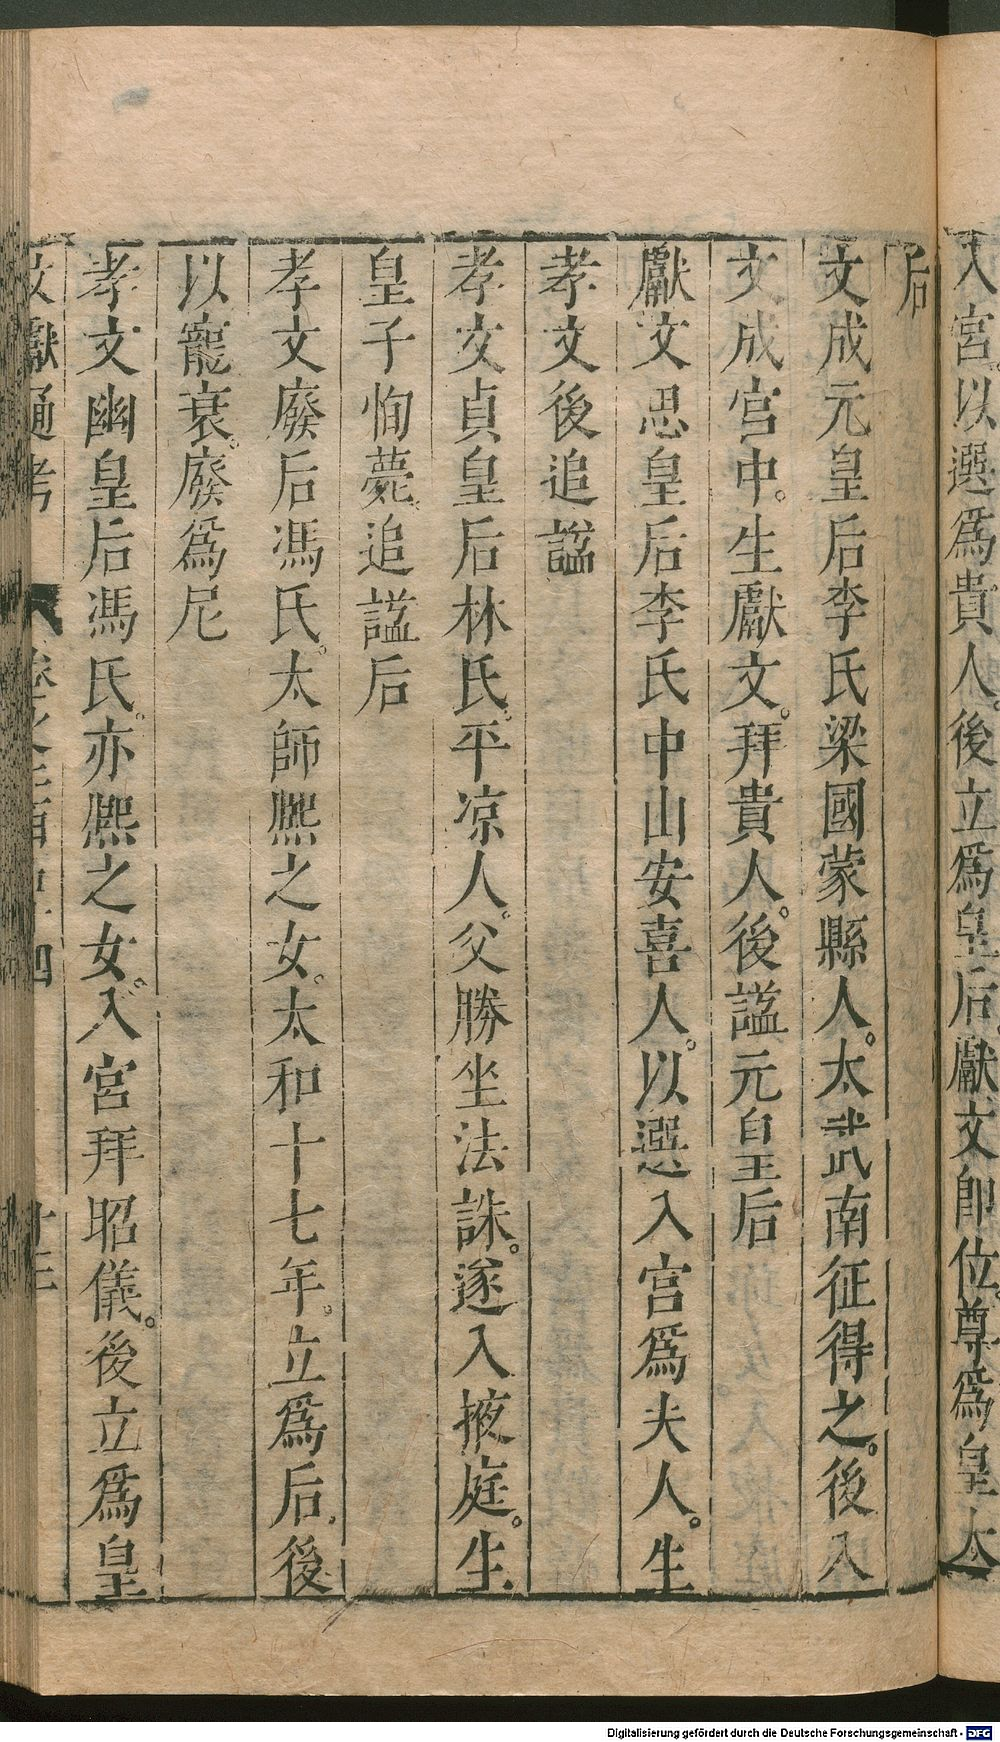 入宮以選爲貴人。後立爲皇后。獻文卽位。尊爲皇太
后
文成元皇后李氏梁國蒙縣人。太武南征得之。後入
文成宮中。生獻文。拜貴人。後謚元皇后
獻文思皇后李氏中山安喜人。以選入宮爲夫人。生
孝文後追謚
孝文貞皇后林氏。平凉人。父勝坐法誅。遂入掖庭。生
皇子恂薨。追謚后
孝文廢后馮氏。太師熈之女。太和十七年。立爲后。後
以寵衰。廢爲尼
孝文幽皇后馮氏。亦熈之女。入宮拜昭儀。後立爲皇
文獻通考 卷之二百五十四 十三
Digitalisierung gefördert durch die Deutsche Forschungsgemeinschaft - DFG